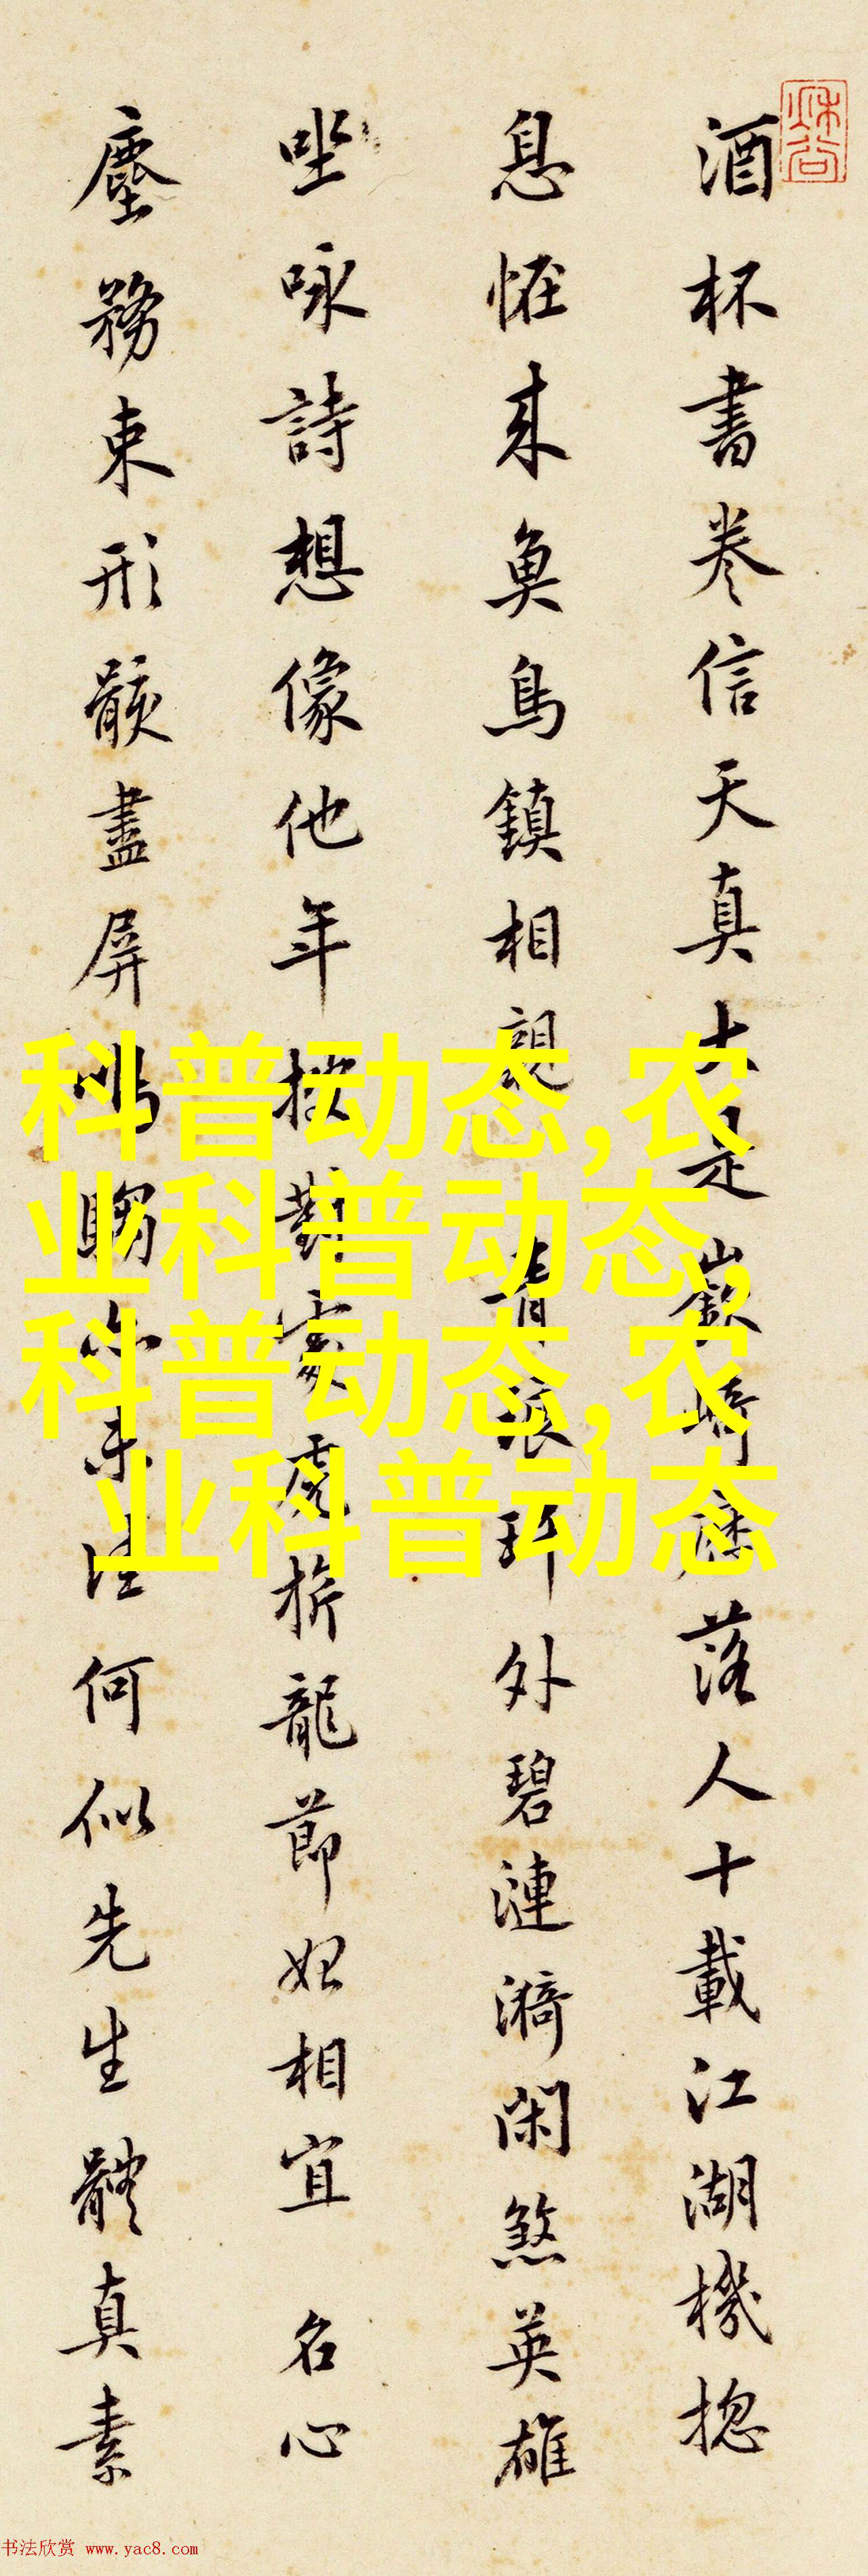 酒杯書卷信天真大是嶔崎落人十載江湖機捴
息恠来魚鳥鎮相親外碧漣漪閑煞英雄
坐咏詩想像他年對處旂龍節相宜名心
塵務束形骸盡屏未何似先生體真素
科普动态,农
业科普动态,
科普动态,农
业科普动态
书法欣赏 www.yac8.com